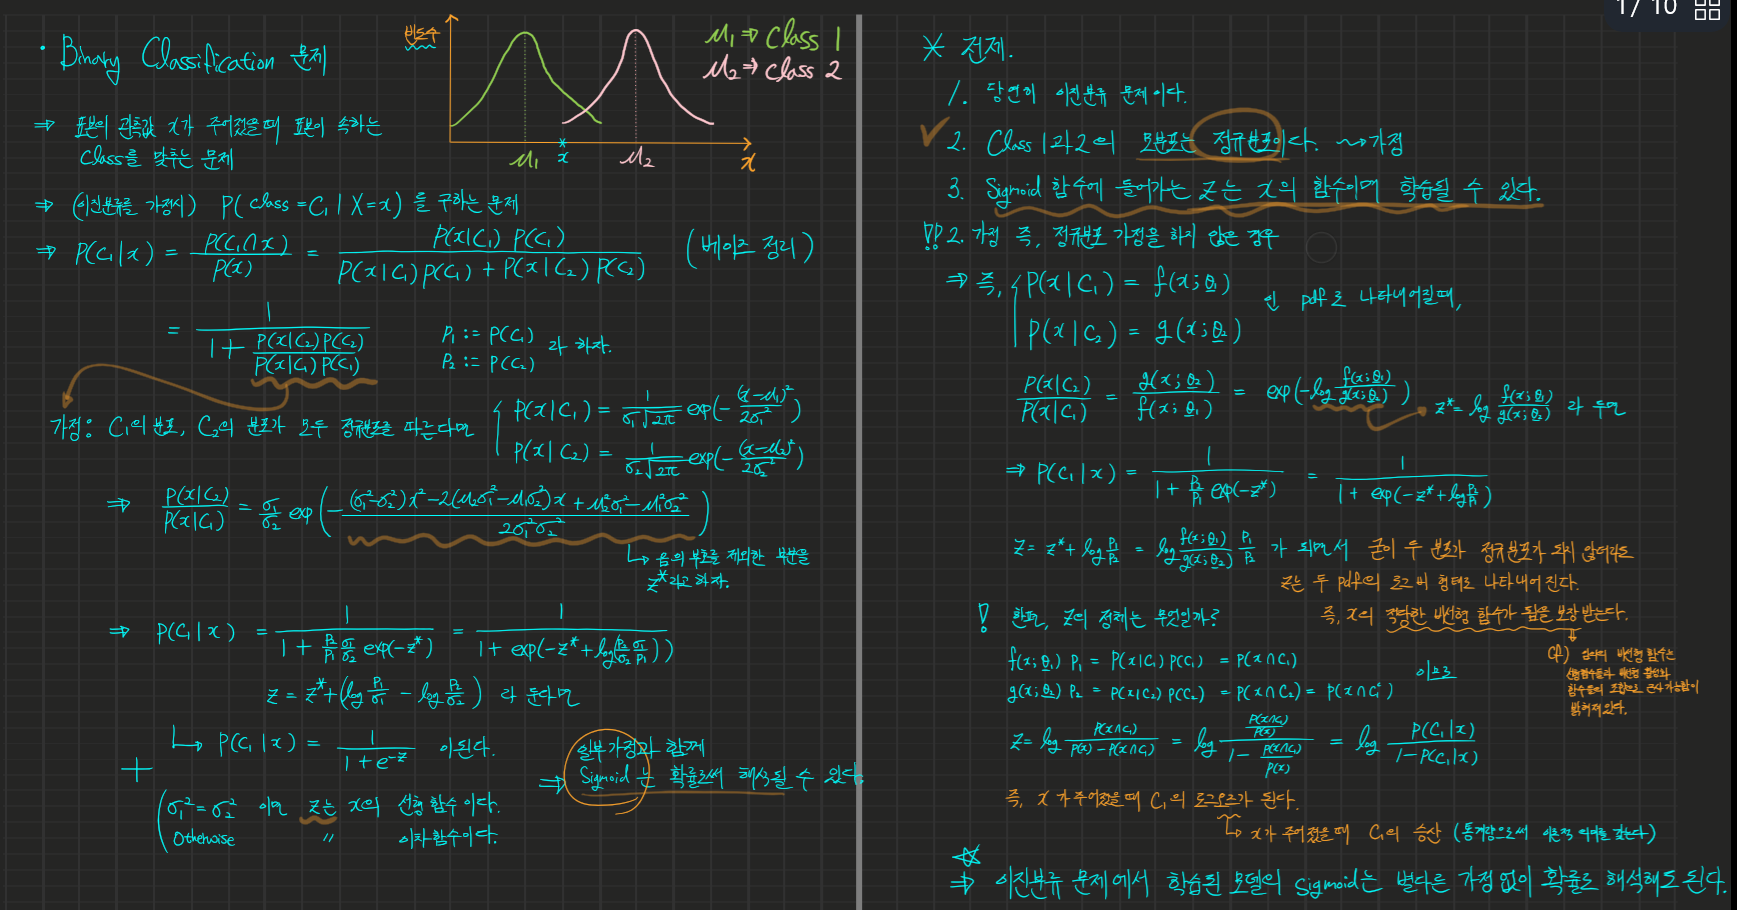 1/10
· Binary Classification 문제
빈도수
μ₁ ⇒ Class 1
μ₂ ⇒ class 2
μ₁ x μ₂ x
⇒ 표본의 관측값 x가 주어졌을때 표본이 속하는
Class를 맞추는 문제
⇒ (이진분류를 가정시) P(class = C₁ | X=x) 를 구하는 문제
⇒ P(C₁|x) = P(C₁∩x) / P(x) = P(x|C₁) P(C₁) / (P(x|C₁)P(C₁) + P(x|C₂)P(C₂)) (베이즈 정리)
= 1 / (1 + P(x|C₂)P(C₂) / P(x|C₁)P(C₁))
P₁ := P(C₁)
P₂ := P(C₂) 라 하자.
가정: C₁의 분포, C₂의 분포가 모두 정규분포를 따른다면
P(x|C₁) = 1/(σ₁√2π) exp(-(x-μ₁)²/2σ₁²)
P(x|C₂) = 1/(σ₂√2π) exp(-(x-μ₂)²/2σ₂²)
⇒ P(x|C₂)/P(x|C₁) = σ₁/σ₂ exp(-((σ₁²-σ₂²)x² - 2(μ₂σ₁²-μ₁σ₂²)x + μ₂²σ₁² - μ₁²σ₂²) / 2σ₁²σ₂²)
↳ 음의 부호를 제외한 부분을
z* 라고 하자.
⇒ P(C₁|x) = 1 / (1 + P₂/P₁ σ₁/σ₂ exp(-z*)) = 1 / (1 + exp(-z* + log(P₂/σ₂ σ₁/P₁)))
z = z* + (log P₁/σ₁ - log P₂/σ₂) 라 둔다면
↳ P(C₁|x) = 1 / (1 + e^-z) 이된다.
+
σ₁² = σ₂² 이면 z는 x의 선형 함수 이다.
Otherwise 〃 이차함수이다.
일부 가정과 함께
⇒ Sigmoid 는 확률로써 해석될 수 있다.
* 전제.
1. 당연히 이진분류 문제이다.
✓ 2. Class 1과 2의 모분포는 정규분포이다. ⇝ 가정
3. Sigmoid 함수에 들어가는 z는 x의 함수이며 학습될 수 있다.
!? 2. 가정 즉, 정규분포 가정을 하지 않은 경우
⇒ 즉, P(x|C₁) = f(x;θ₁)
P(x|C₂) = g(x;θ₂)
인 pdf로 나타내어질때,
P(x|C₂)/P(x|C₁) = g(x;θ₂)/f(x;θ₁) = exp(-log f(x;θ₁)/g(x;θ₂)) z* = log f(x;θ₁)/g(x;θ₂) 라 두면
⇒ P(C₁|x) = 1 / (1 + P₂/P₁ exp(-z*)) = 1 / (1 + exp(-z* + log P₂/P₁))
z = z* + log P₁/P₂ = log f(x;θ₁)/g(x;θ₂) P₁/P₂ 가 되면서 굳이 두 분포가 정규분포가 되지 않더라도
z는 두 pdf의 로그 비 형태로 나타내어진다.
즉, x의 적당한 비선형 함수가 됨을 보장받는다.
! 한편, z의 정체는 무엇일까?
cf) 임의의 비선형 함수는
선형함수들과 비선형 활성화
함수들의 조합으로 근사 가능함이
밝혀져있다.
f(x;θ₁) P₁ = P(x|C₁) P(C₁) = P(x∩C₁)
g(x;θ₂) P₂ = P(x|C₂) P(C₂) = P(x∩C₂) = P(x∩C₁ᶜ)
이므로
z = log P(x∩C₁) / (P(x) - P(x∩C₁)) = log (P(x∩C₁)/P(x)) / (1 - P(x∩C₁)/P(x)) = log P(C₁|x) / (1-P(C₁|x))
즉, x가 주어졌을때 C₁의 로그오즈가 된다.
↳ x가 주어졌을때 C₁의 승산 (통계량으로써 이론적 의미를 갖는다)
☆
⇒ 이진분류 문제에서 학습된 모델의 Sigmoid는 별다른 가정 없이 확률로 해석해도 된다.